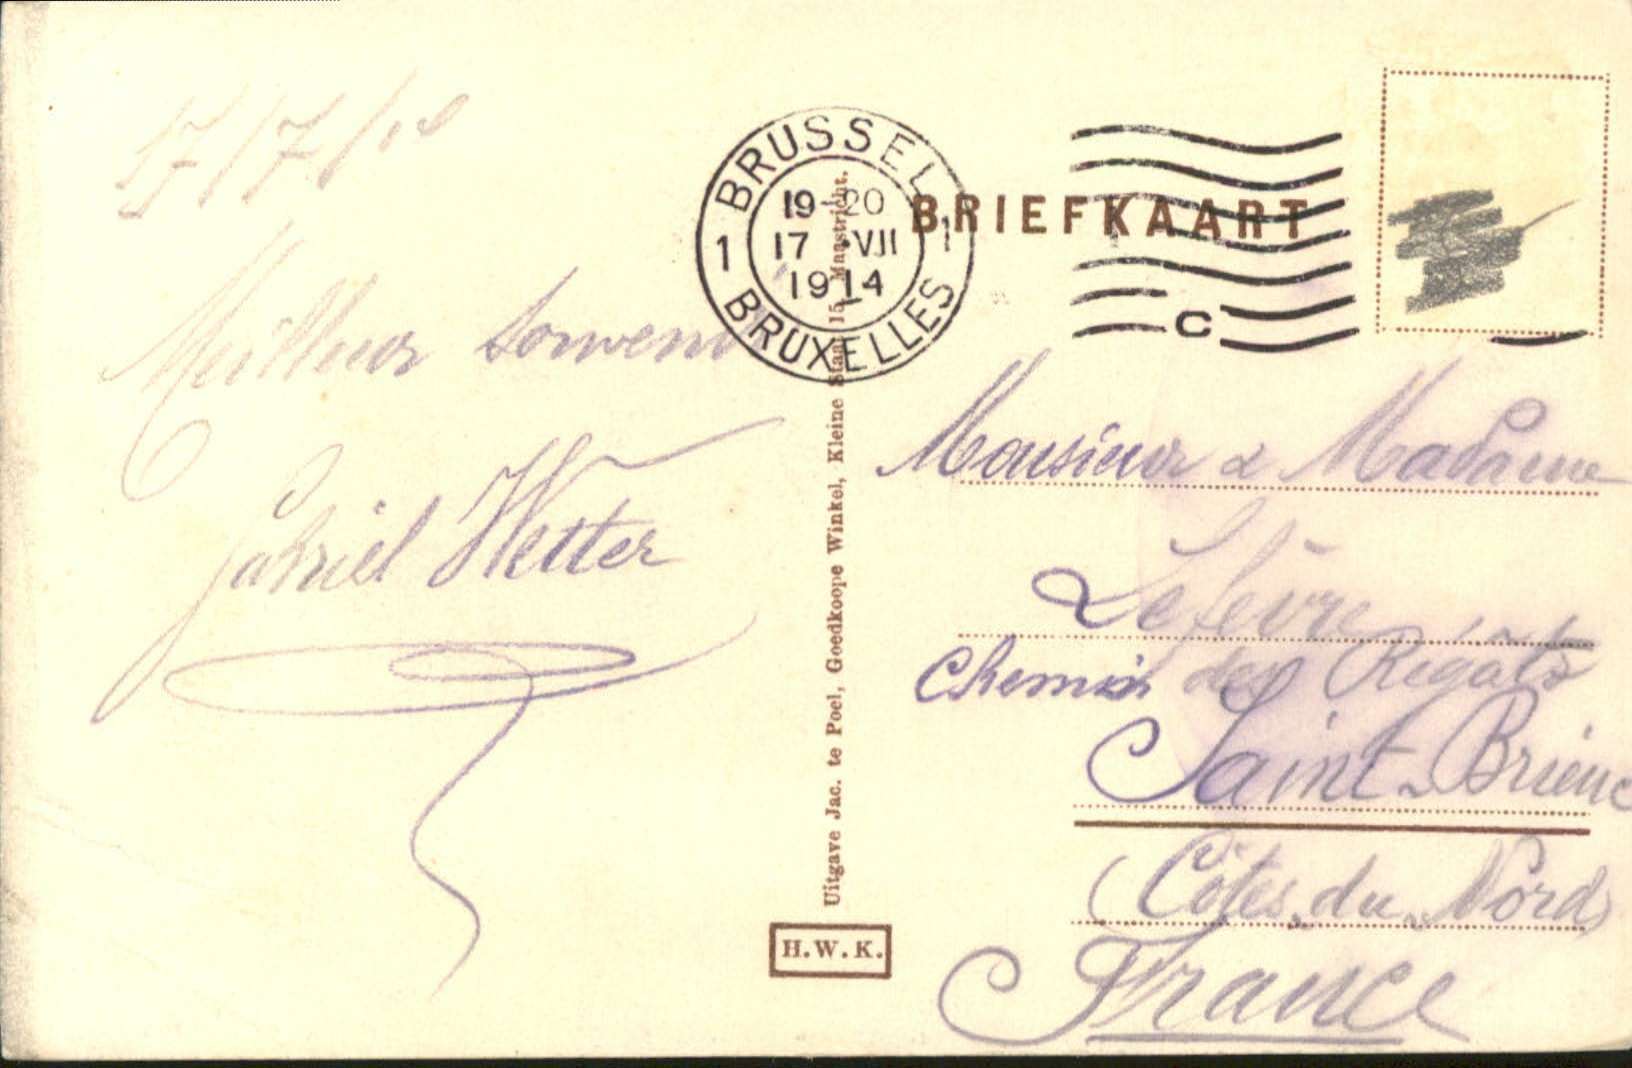 17/7/10
Meilleur Souvenir
Gabriel Wetter
BRUSSEL
19-20
17 VII
1914
1 1
BRUXELLES
BRIEFKAART
C
Uitgave Jac. te Poel, Goedkoope Winkel, Kleine Staat 15, Maastricht.
H.W.K.
Monsieur & Madame
Lefèvre
Chemin des
Saint-Brieuc
(Côtes du Nord)
France